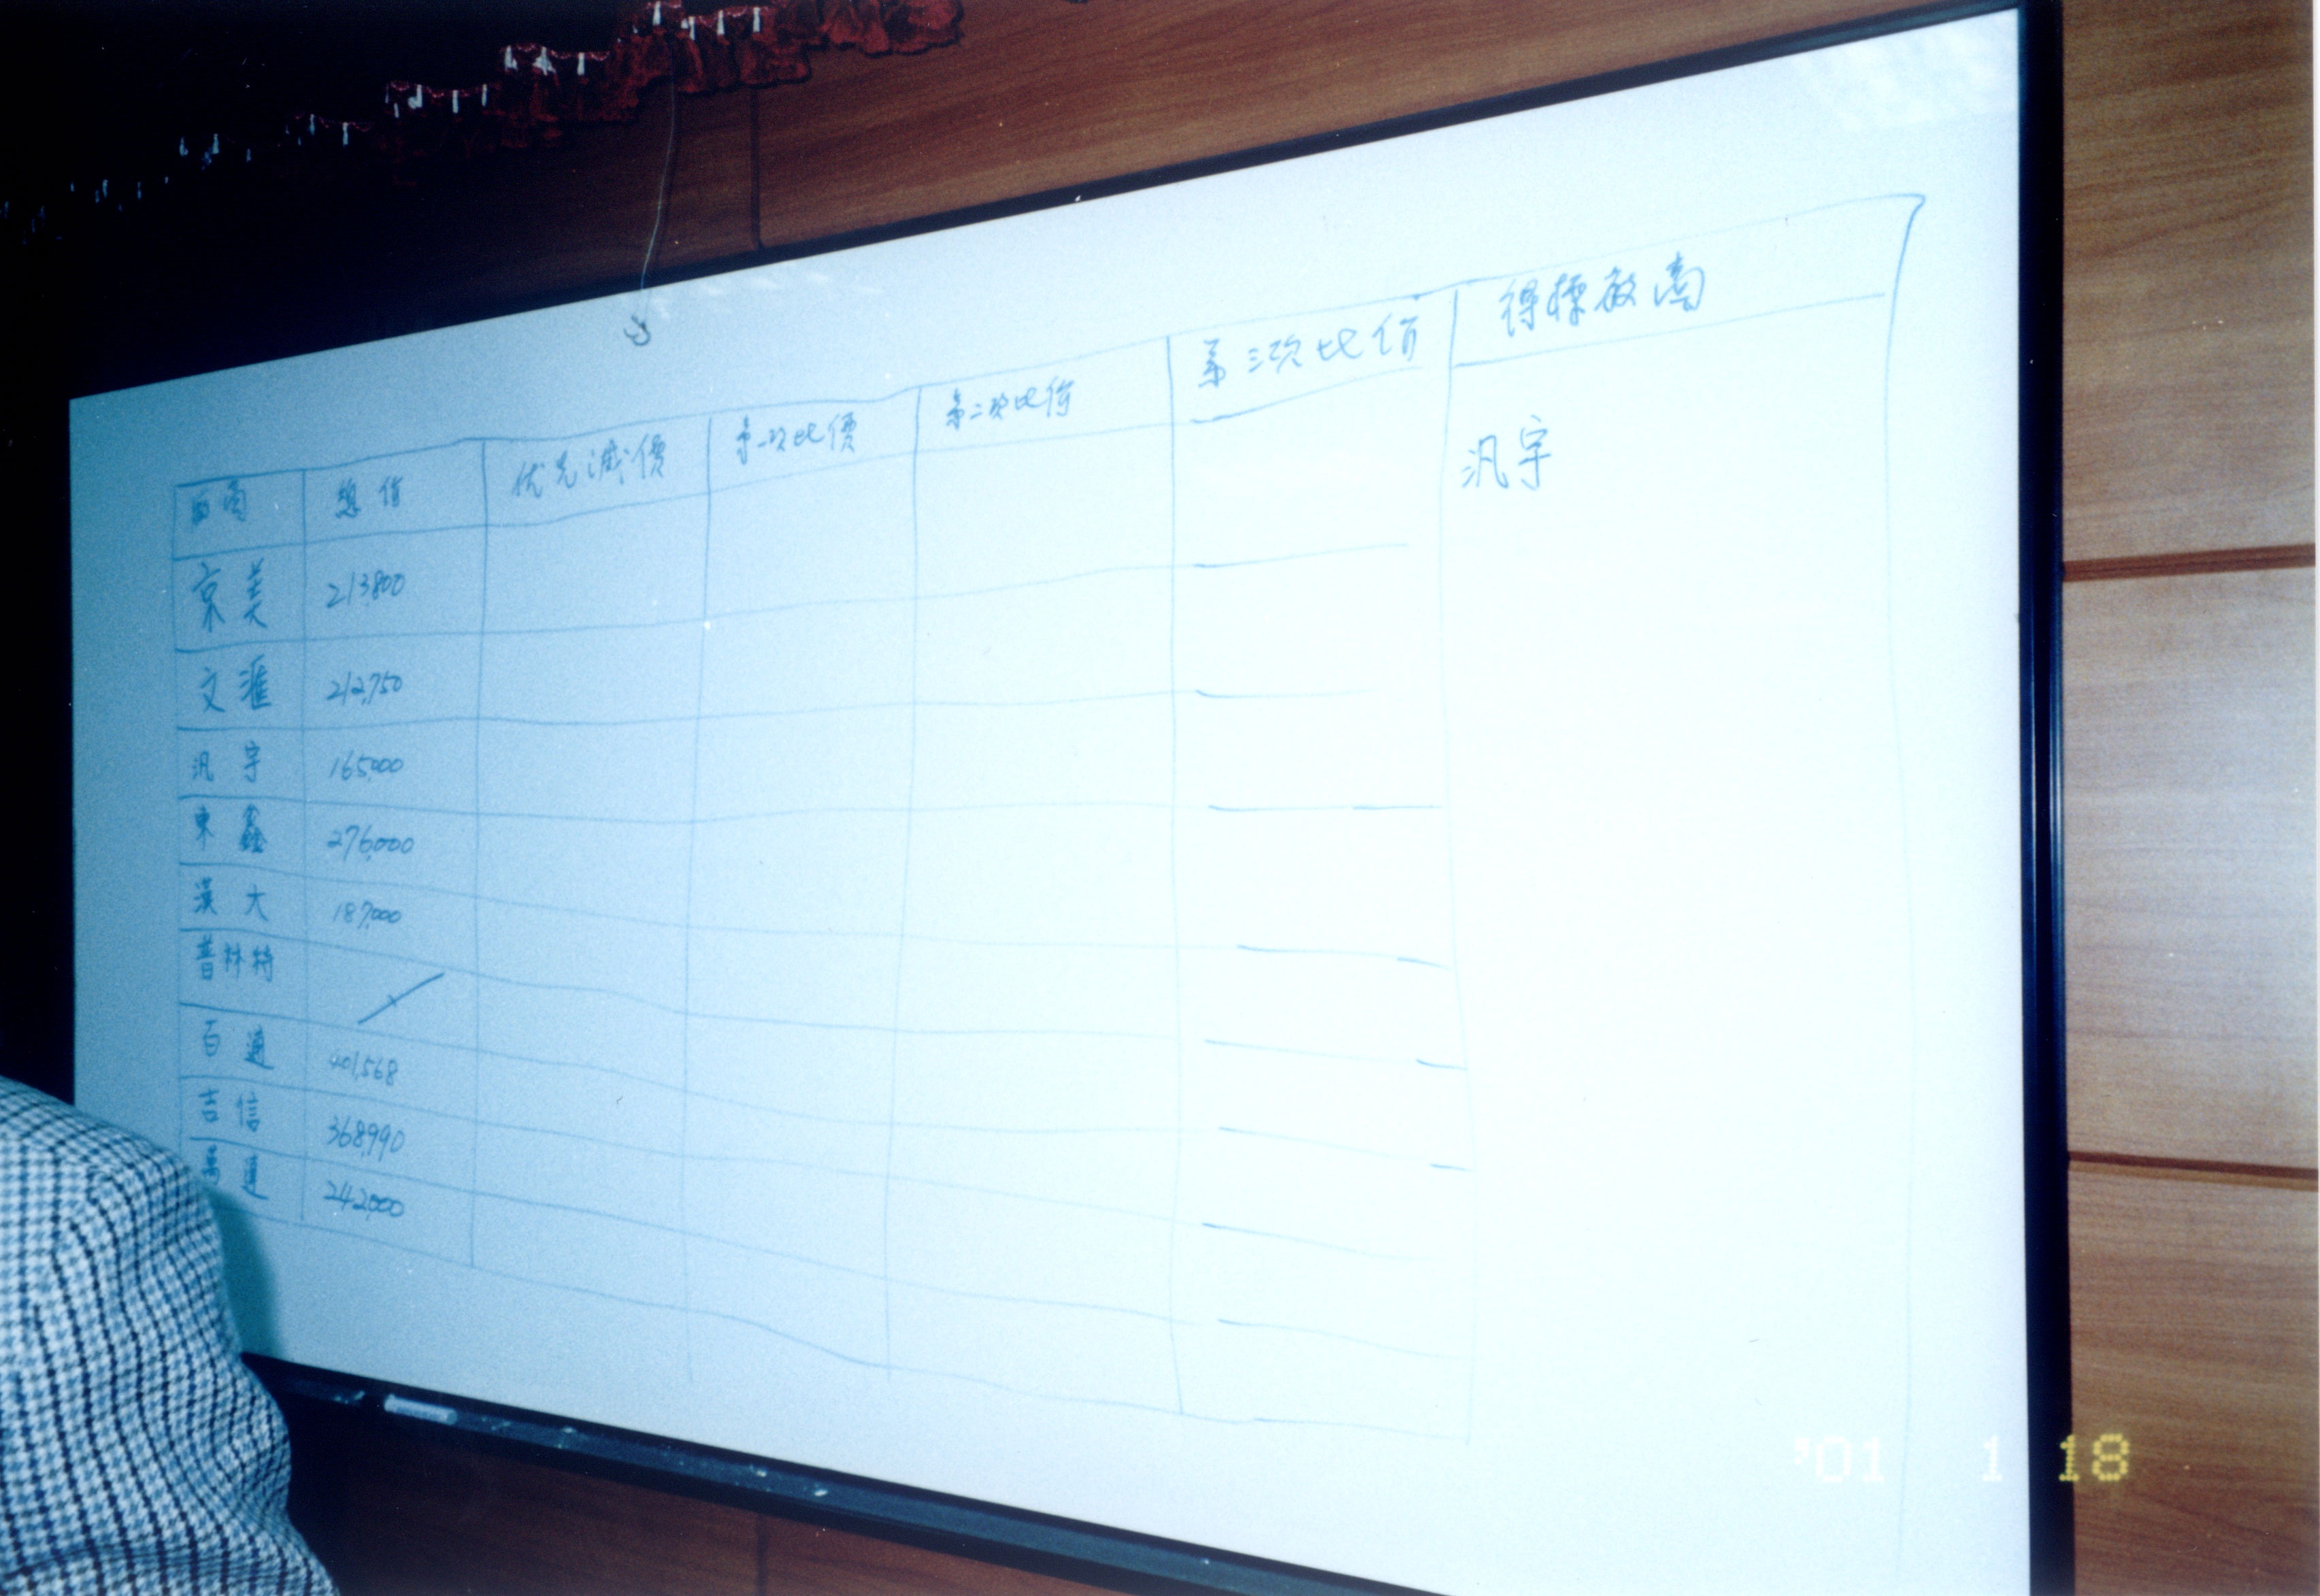 总价 优先減價 第一次比價 第二次比价 第三次比価 得標廠商
京美 213,800 汎宇
文滙 212,750
汎宇 165,000
東鑫 276,000
漢大 187,000
普林特
百通 401,568
吉信 368,990
萬通 242,000
'01 1 18